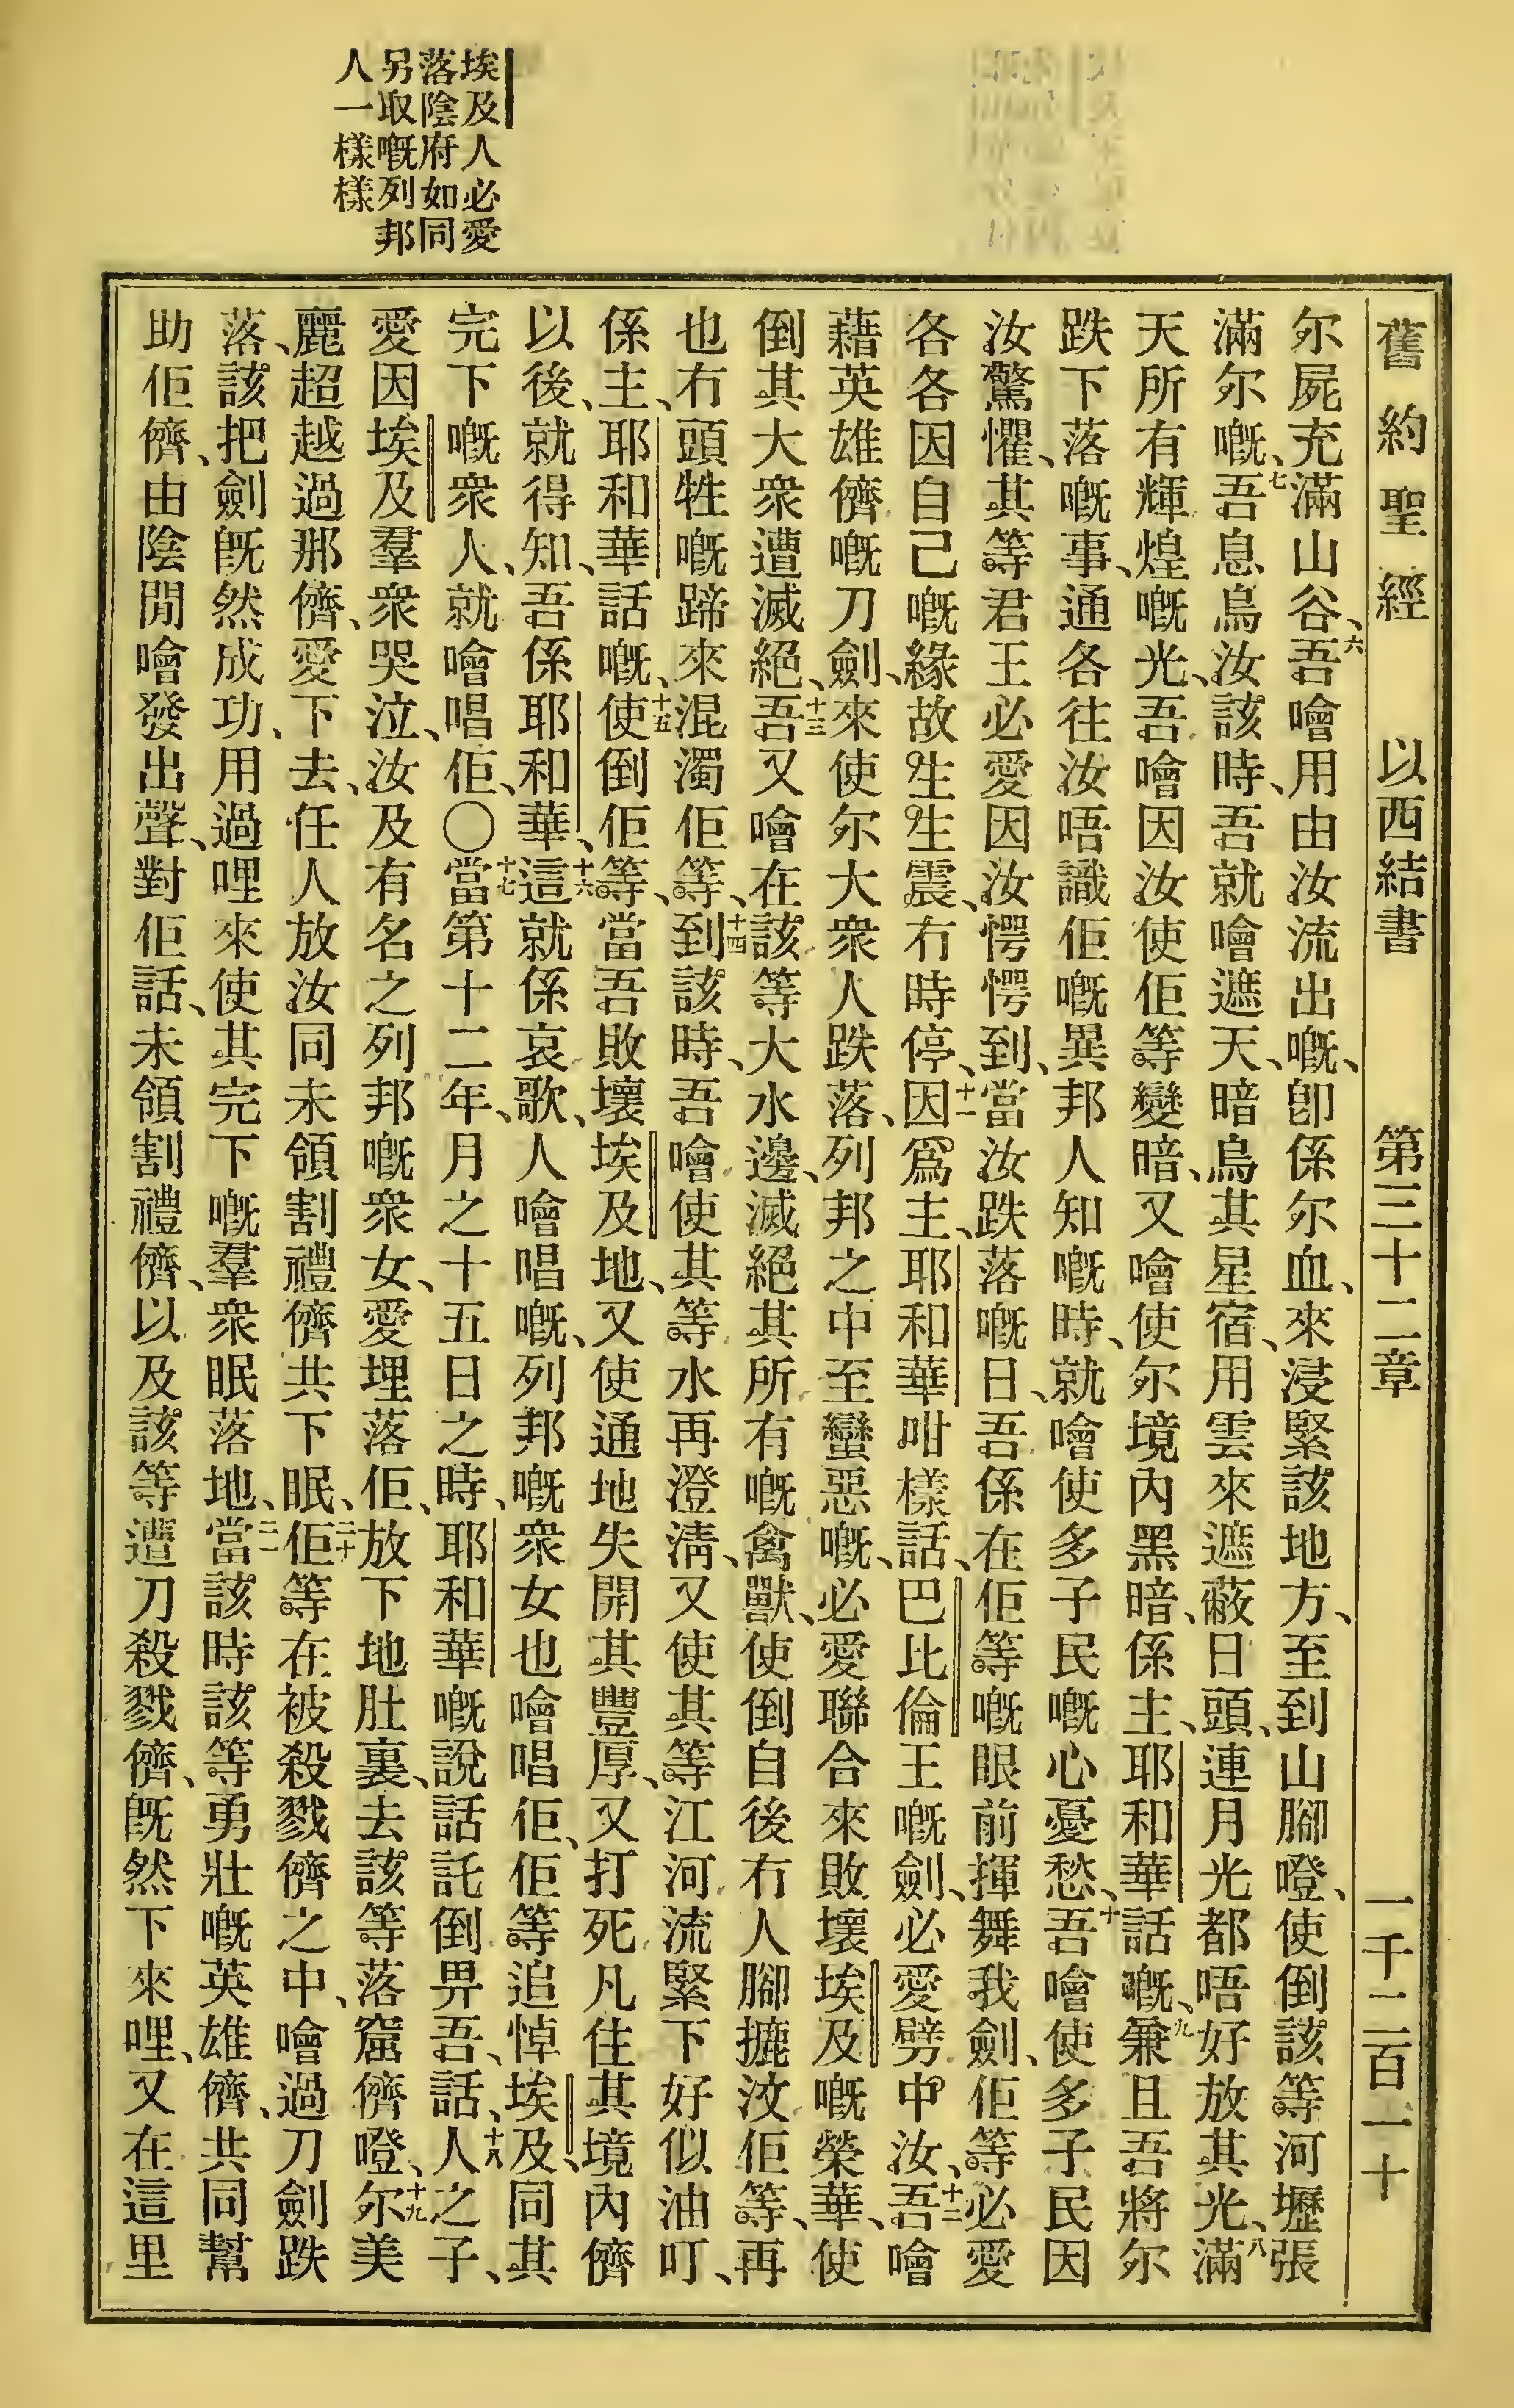 舊約聖經 以西結書 第三十二章 一千二百一十
尔屍充滿山谷、六吾噲用由汝流出嘅、卽係尔血、來浸緊該地方、至到山腳嶝、使倒該等河壢張
滿尔嘅、七吾息烏汝該時、吾就噲遮天、暗烏其星宿、用雲來遮蔽日頭、連月光都唔好放其光、八滿
天所有輝煌嘅光、吾噲因汝使佢等變暗、又噲使尔境內黑暗、係主、耶和華話嘅、九兼且吾將尔
跌下落嘅事、通各往汝唔識佢嘅異邦人知嘅時、就噲使多子民嘅心憂愁、十吾噲使多子民因
汝驚懼、其等君王必愛因汝愕愕到、當汝跌落嘅日、吾係在佢等嘅眼前揮舞我劍、佢等必愛
各各因自己嘅緣故生生震、冇時停、十一因爲主、耶和華咁樣話、巴比倫王嘅劍、必愛劈中汝、十二吾噲
藉英雄儕嘅刀劍、來使尔大衆人跌落、列邦之中至蠻惡嘅、必愛聯合來敗壞埃及嘅榮華、使
倒其大衆遭滅絕、十三吾又噲在該等大水邊、滅絕其所有嘅禽獸、使倒自後冇人腳摝汶佢等、再
也冇頭牲嘅蹄來混濁佢等、十四到該時、吾噲使其等水再澄淸、又使其等江河流緊下好似油叮、
係主、耶和華話嘅、十五使倒佢等、當吾敗壞埃及地、又使通地失開其豐厚、又打死凡住其境內儕
以後、就得知、吾係耶和華、十六這就係哀歌、人噲唱嘅、列邦嘅衆女也噲唱佢、佢等追悼埃及、同其
完下嘅衆人、就噲唱佢、〇十七當第十二年、月之十五日之時、耶和華嘅說話託倒畀吾、話、十八人之子、
愛因埃及羣衆哭泣、汝及有名之列邦嘅衆女、愛埋落佢、放下地肚裏、去該等落窟儕嶝、十九尔美
麗超越過那儕、愛下去、任人放汝同未領割禮儕共下眠、二十佢等在被殺戮儕之中、噲過刀劍跌
落、該把劍旣然成功、用過哩來使其完下嘅羣衆眠落地、二一當該時該等勇壯嘅英雄儕、共同幫
助佢儕、由陰閒噲發出聲、對佢話、未領割禮儕、以及該等遭刀殺戮儕、旣然下來哩、又在這里
埃及人必愛
落陰府如同
另取嘅列邦
人一樣樣